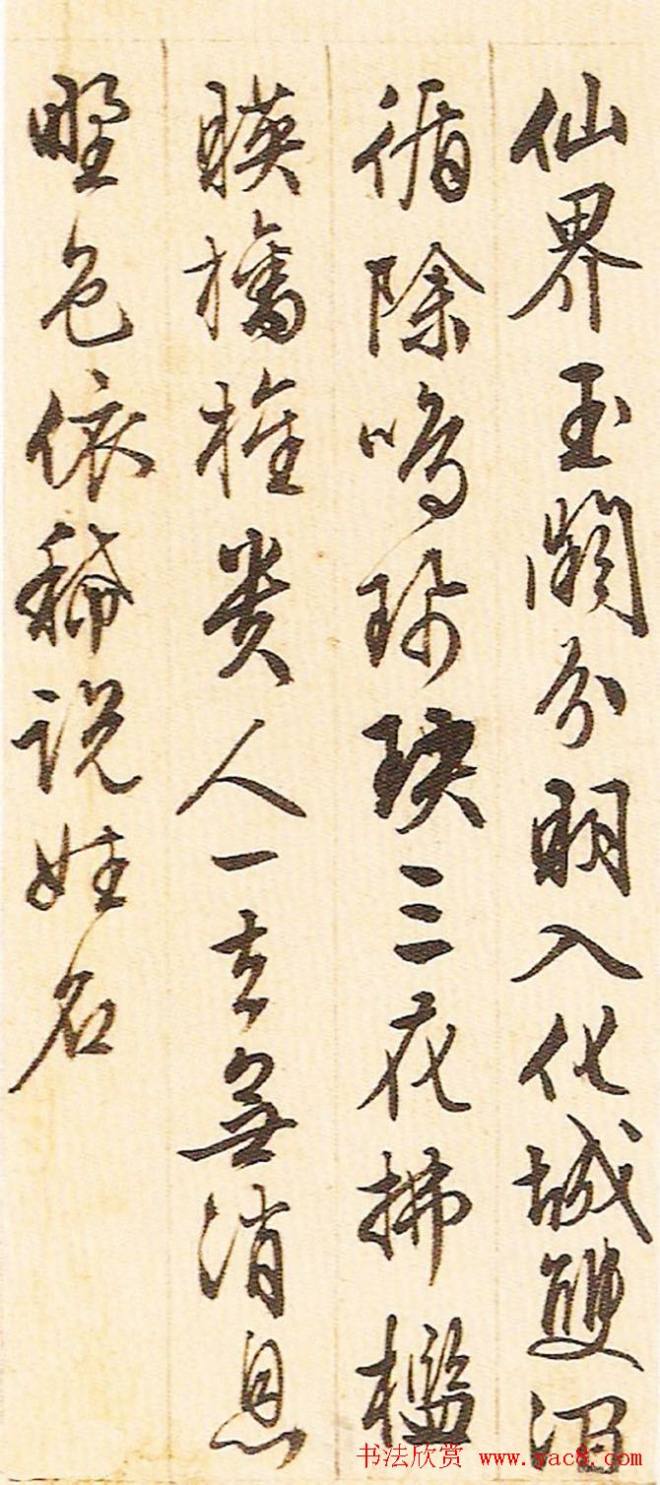 仙界玉分明入化城雙
循除鳴珮玦三花拂檻
暎旛旌貴人一去無消息
野色依稀說姓名
书法欣赏 www.yac8.com